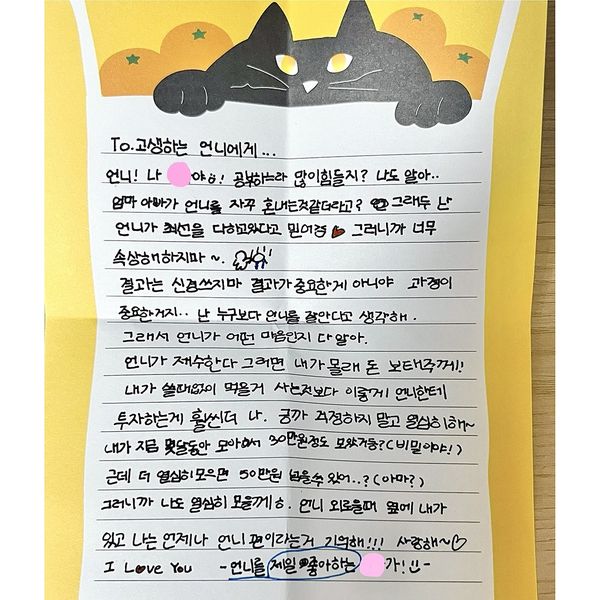 To. 고생하는 언니에게...
언니! 나 야ㅎ! 공부하느라 많이힘들지? 나도 알아..
엄마 아빠가 언니를 자꾸 혼내는것같더라고? 그래두 난
언니가 최선을 다하고있다고 믿어용 그러니까 너무
속상해하지마~.
결과는 신경쓰지마 결과가 중요한게 아니야 과정이
중요한거지.. 난 누구보다 언니를 잘안다고 생각해.
그래서 언니가 어떤 마음인지 다 알아.
언니가 재수한다 그러면 내가 몰래 돈 보태주께!!
내가 쓸때없이 먹을거 사는것보다 이렇게 언니한테
투자하는게 훨씬더 나. 긍까 걱정하지 말고 열심히해~
내가 지금 몇달동안 모아서 30만원정도 모았거등? (비밀이야!)
근데 더 열심히모으면 50만원 넘을수 있어..? (아마?)
그러니까 나도 열심히 모을께ㅎ. 언니 외로울때 옆에 내가
있고 나는 언제나 언니 편이라는거 기억해!!! 사랑해~♡
I Love You - 언니를 제일 좋아하는 가! -